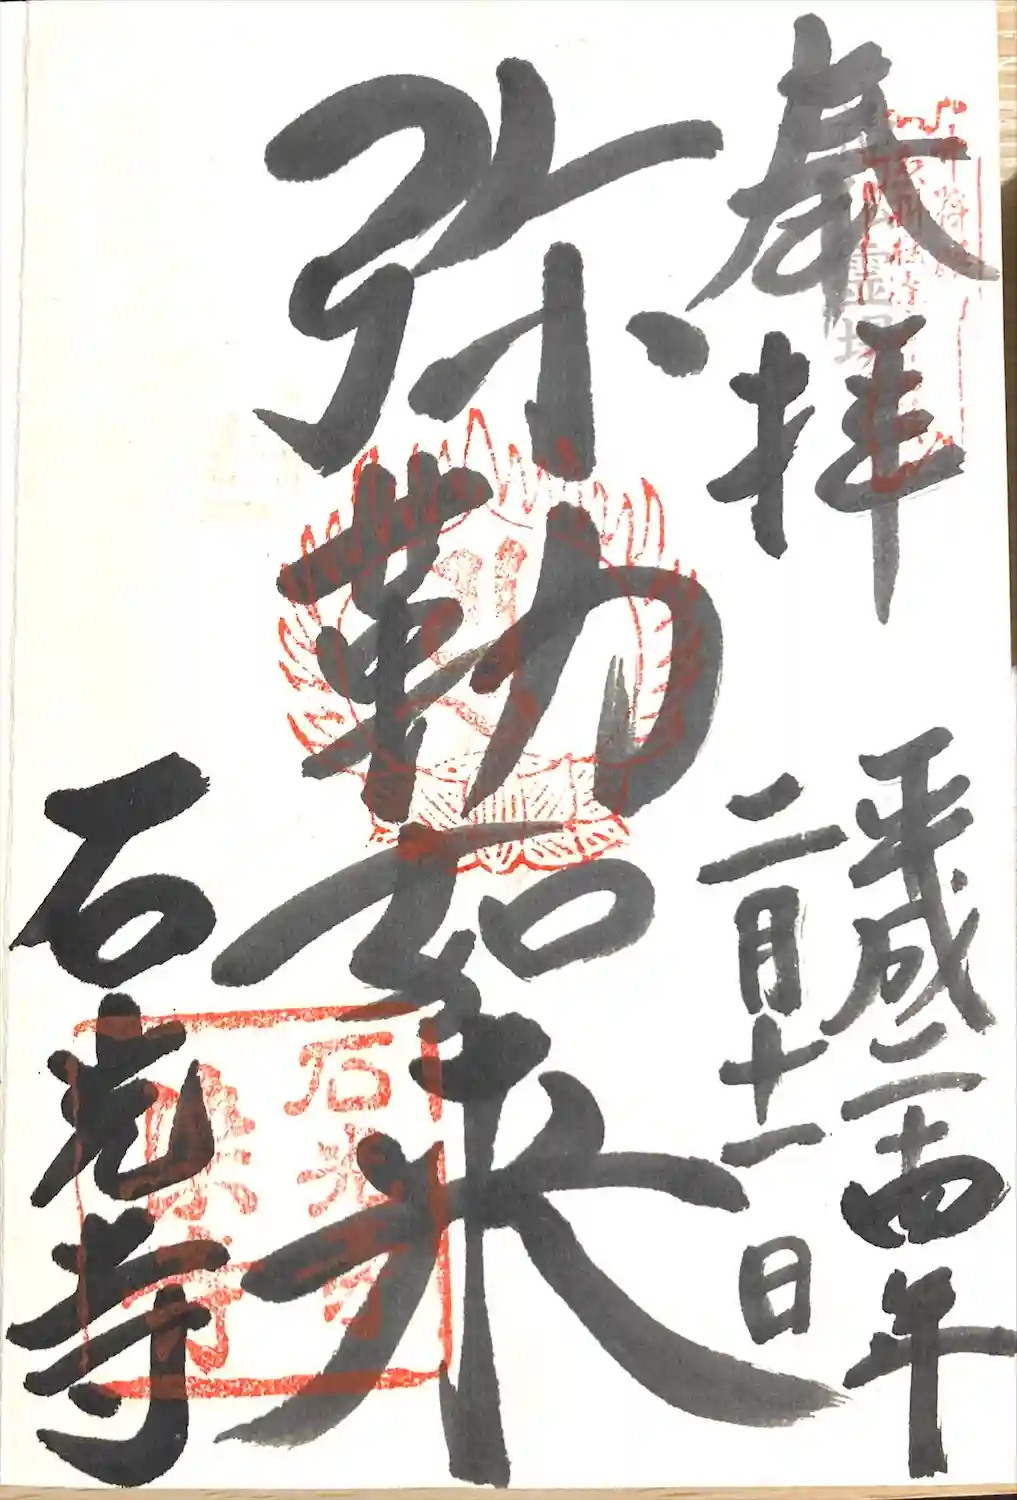 奉拝
平成二十四年
二月十一日
弥勒如来
石光寺
石光寺